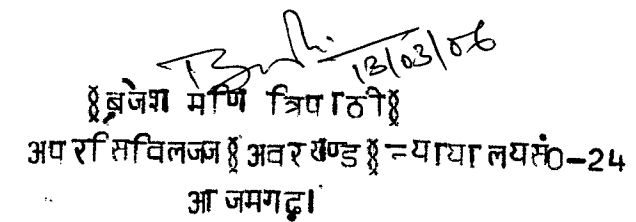 13/03/06
§ब्रजेश मणि त्रिपाठी§
अपर सिविल जज §अवर खण्ड§ न्यायालय सं0-24
आजमगढ़।